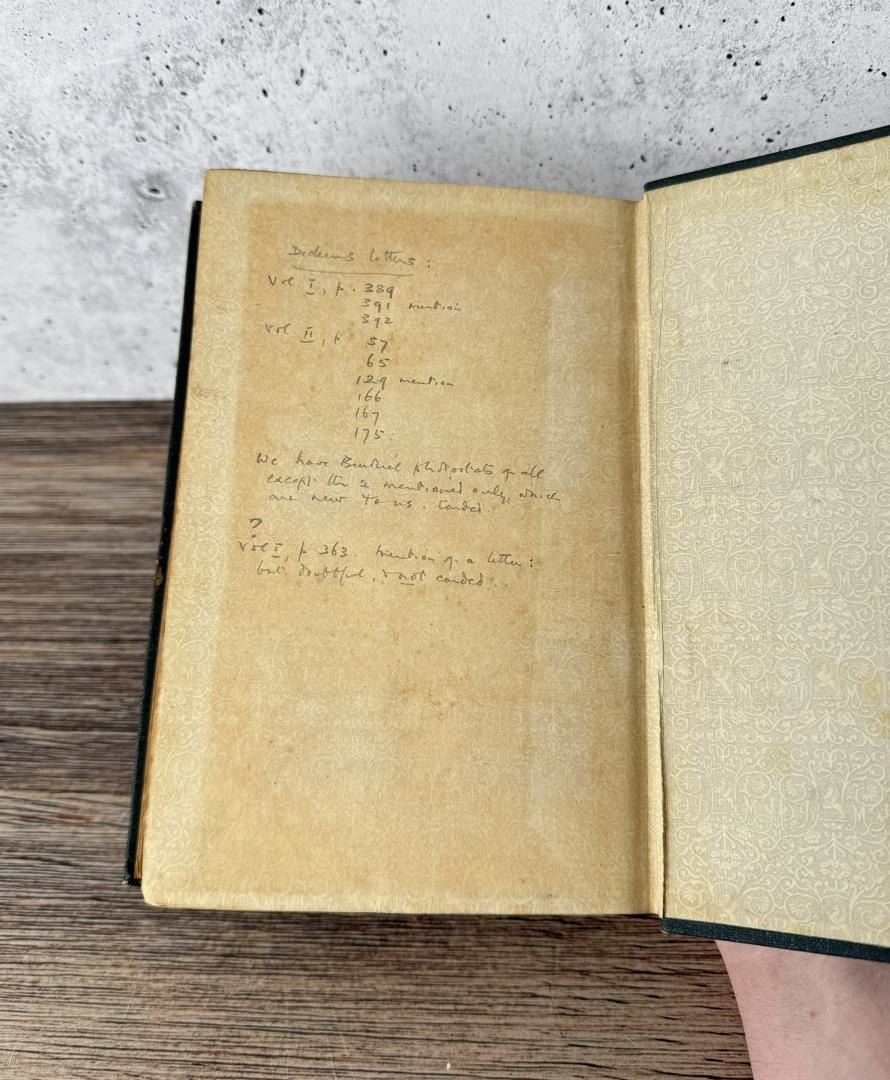 Dickens letters:
Vol. I, p. 389
391 mention
392
Vol II, p 57
65
129 mention
166
167
175.
We have photostats of all
except the 2 mentioned only, which
are new to us. Carded.
?
Vol I, p. 363. Mention of a letter:
but doubtful, & not carded.